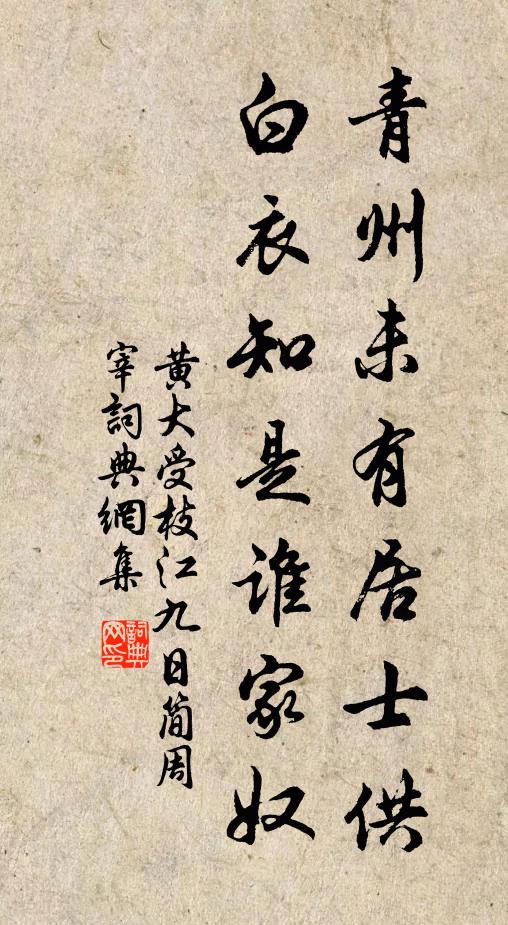 青州未有居士供
白衣知是谁家奴
黄大受枝江九日简周
宰詞典網集
詞典
网印